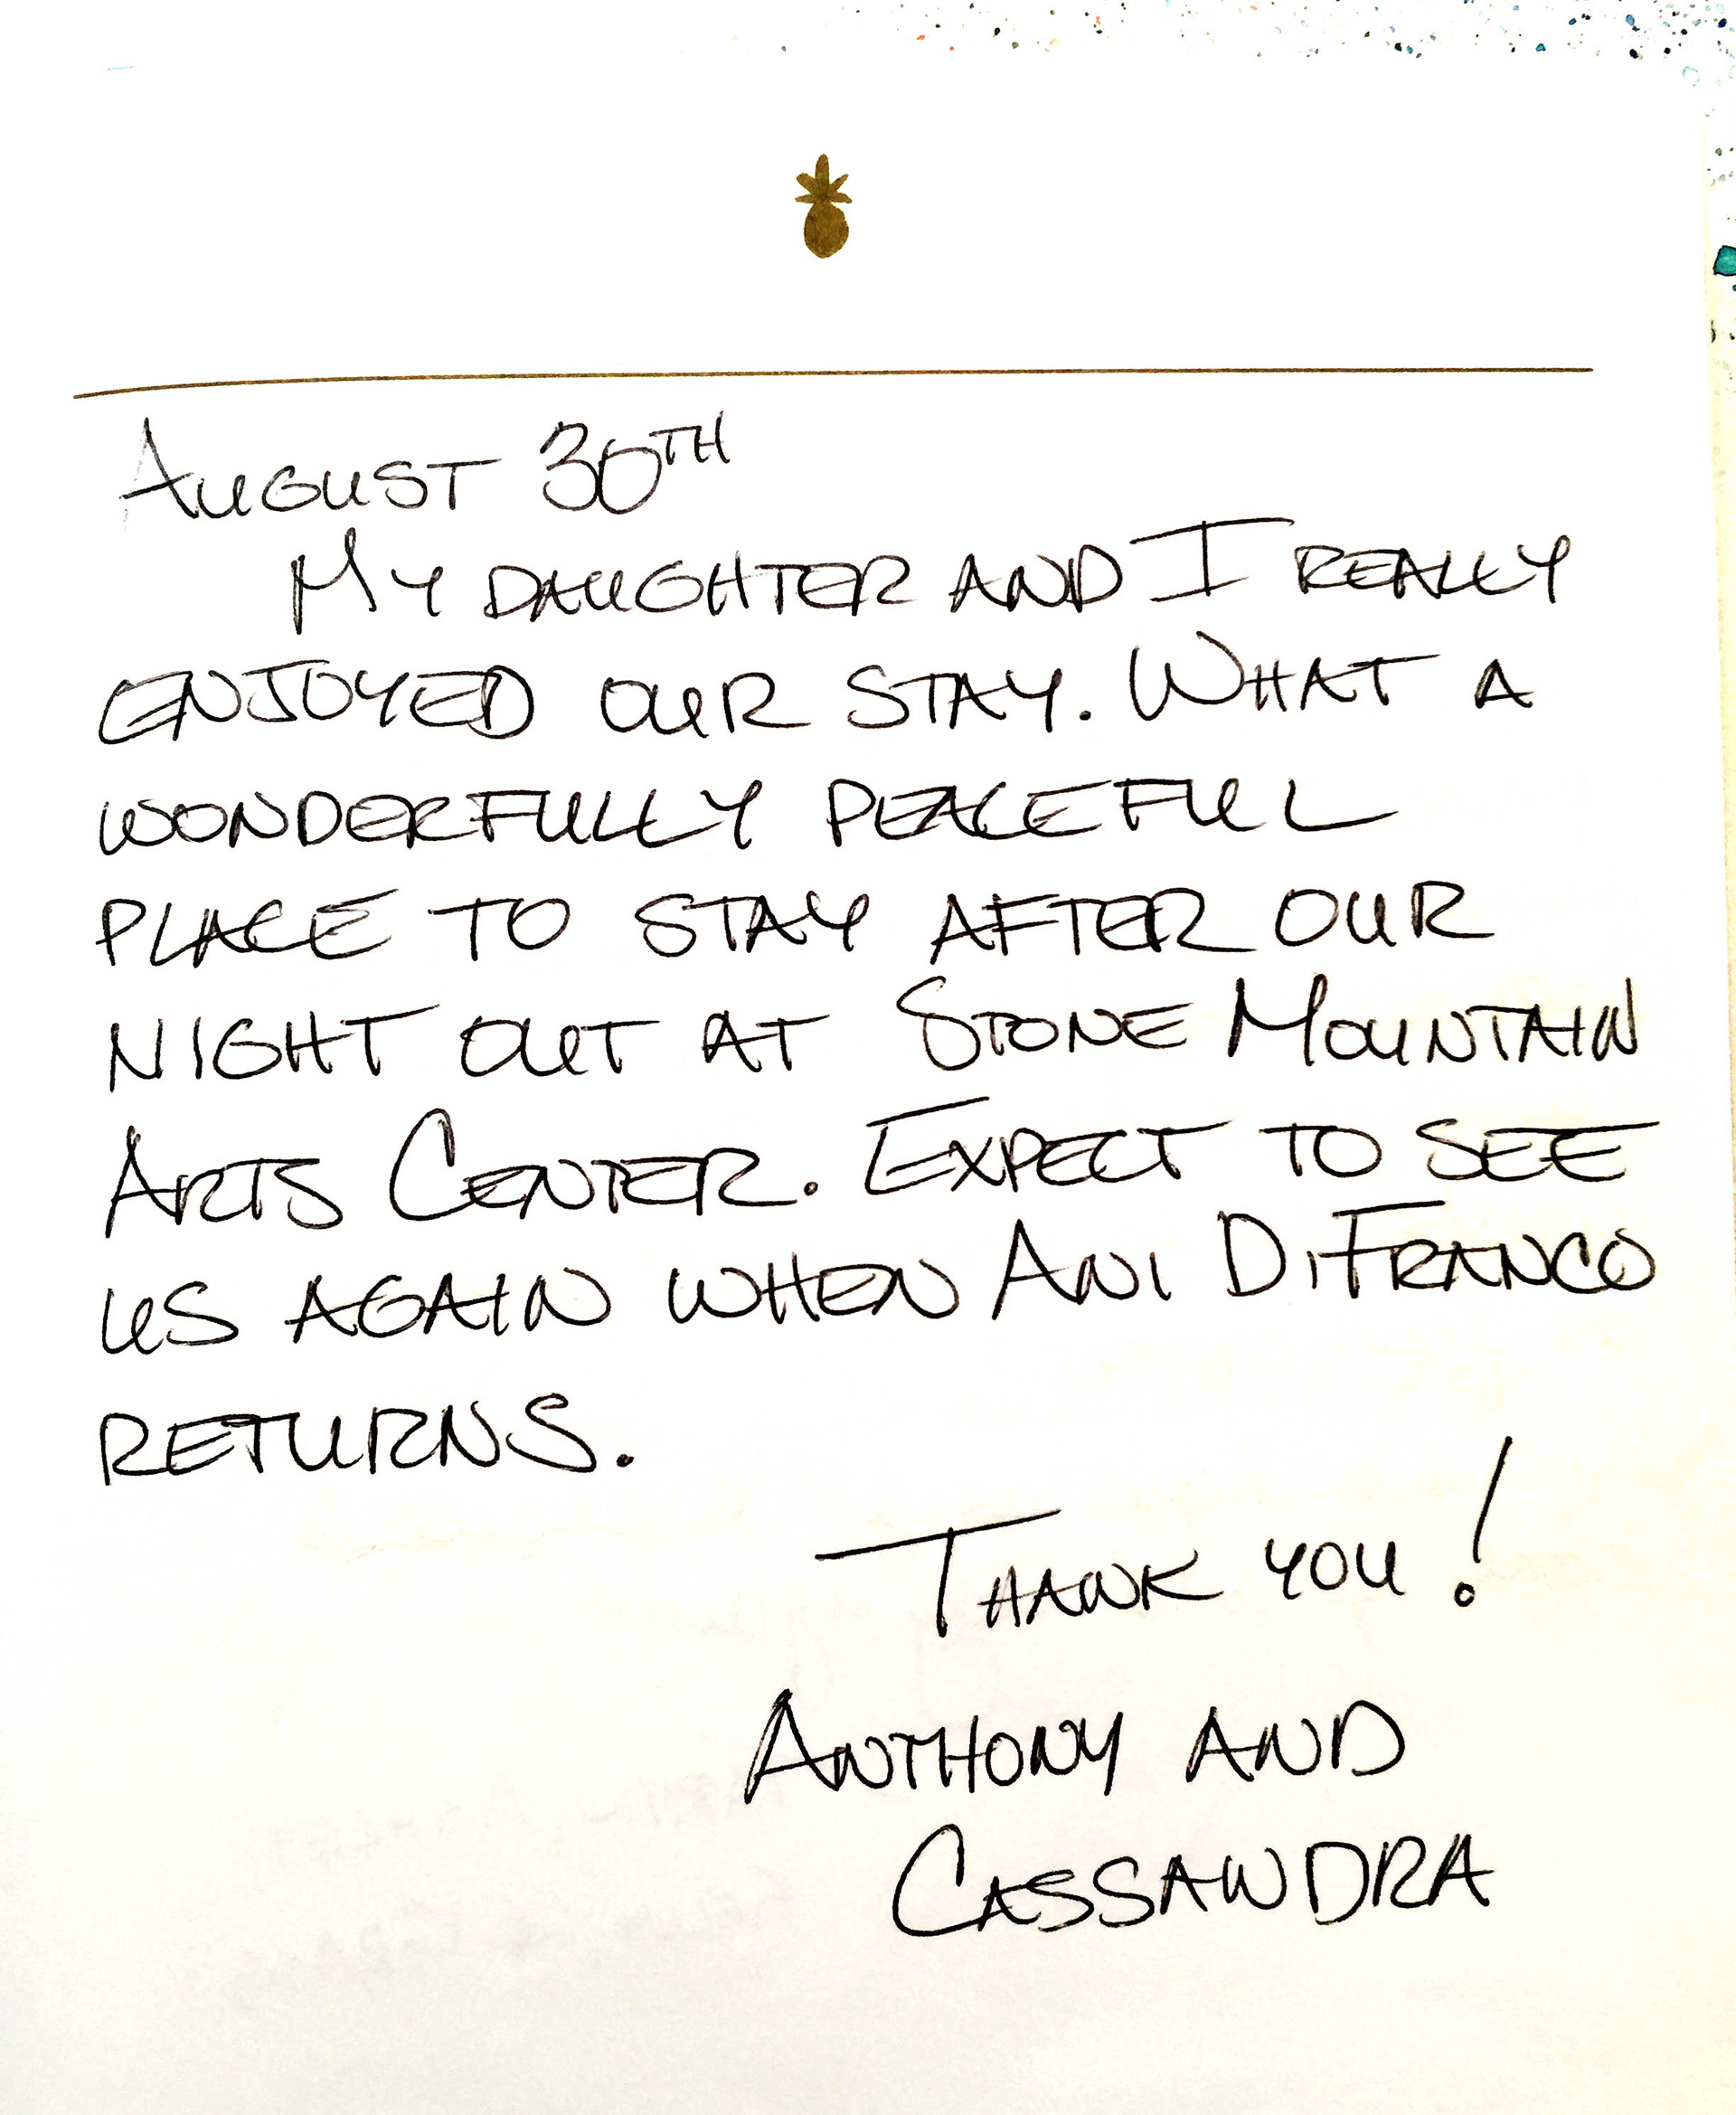 August 30TH
My daughter and I really
enjoyed our stay. What a
wonderfully peaceful
place to stay after our
night out at Stone Mountain
Arts Center. Expect to see
us again when Ani DiFranco
returns.
Thank you!
Anthony and
Cassandra